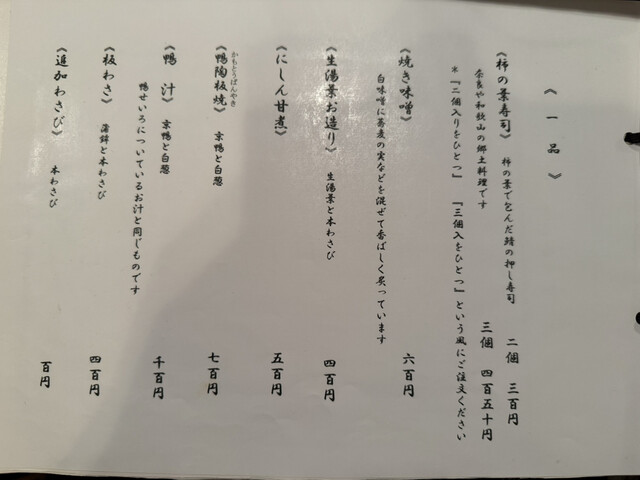 《 一 品 》
《柿の葉寿司》 柿の葉で包んだ鯖の押し寿司 二個 三百円
奈良や和歌山の郷土料理です 三個 四百五十円
＊『二個入りをひとつ』 『三個入をひとつ』という風にご注文ください
《焼き味噌》 六百円
白味噌に蕎麦の実などを混ぜて香ばしく炙っています
《生湯葉お造り》 生湯葉と本わさび 四百円
《にしん甘煮》 五百円
かもとうばんやき
《鴨陶板焼》 京鴨と白葱 七百円
《鴨 汁》 京鴨と白葱 千百円
鴨せいろについているお汁と同じものです
《板わさ》 蒲鉾と本わさび 四百円
《追加わさび》 本わさび 百円